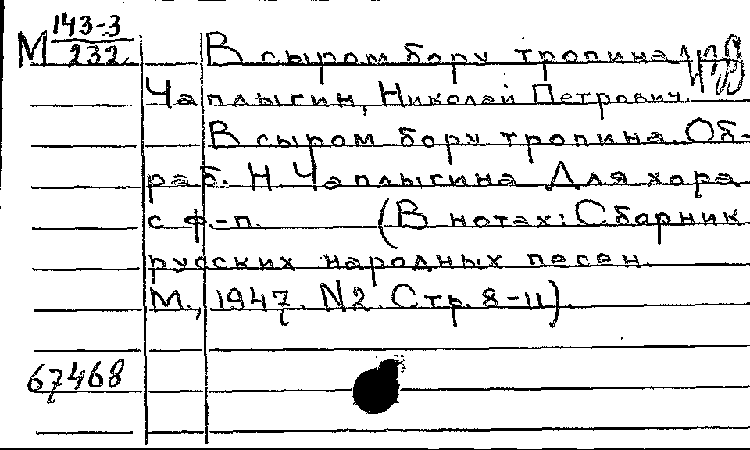 М 143-3/232 В сыром бору тропина
Чаплыгин, Николай Петрович.
В сыром бору тропина. Об-
раб. Н. Чаплыгина. Для хора
с ф.-п. (В нотах: Сборник
русских народных песен.
М., 1947. N2. Стр. 8-11).
67468